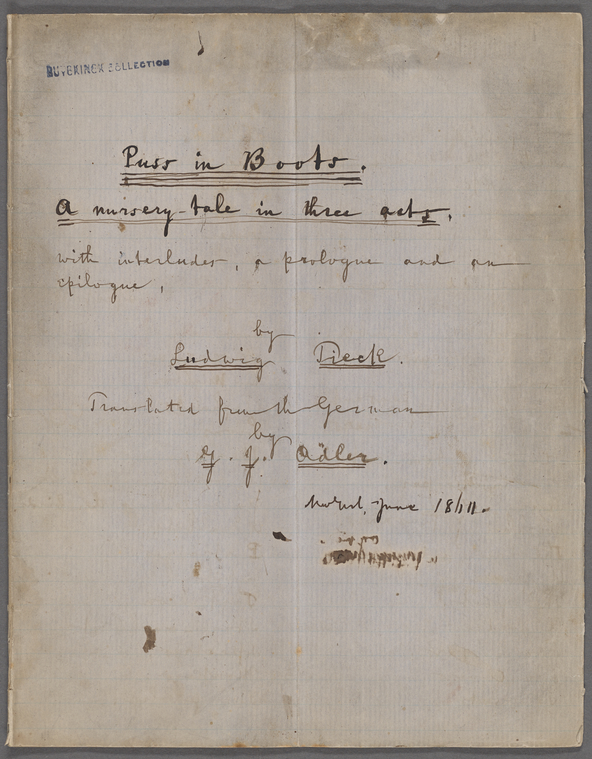 DUYCKINCK COLLECTION
Puss in Boots.
A nursery-tale in three acts,
with interludes, a prologue and an
epilogue,
by
Ludwig Tieck.
Translated from the German
by
G. J. Adler.
June